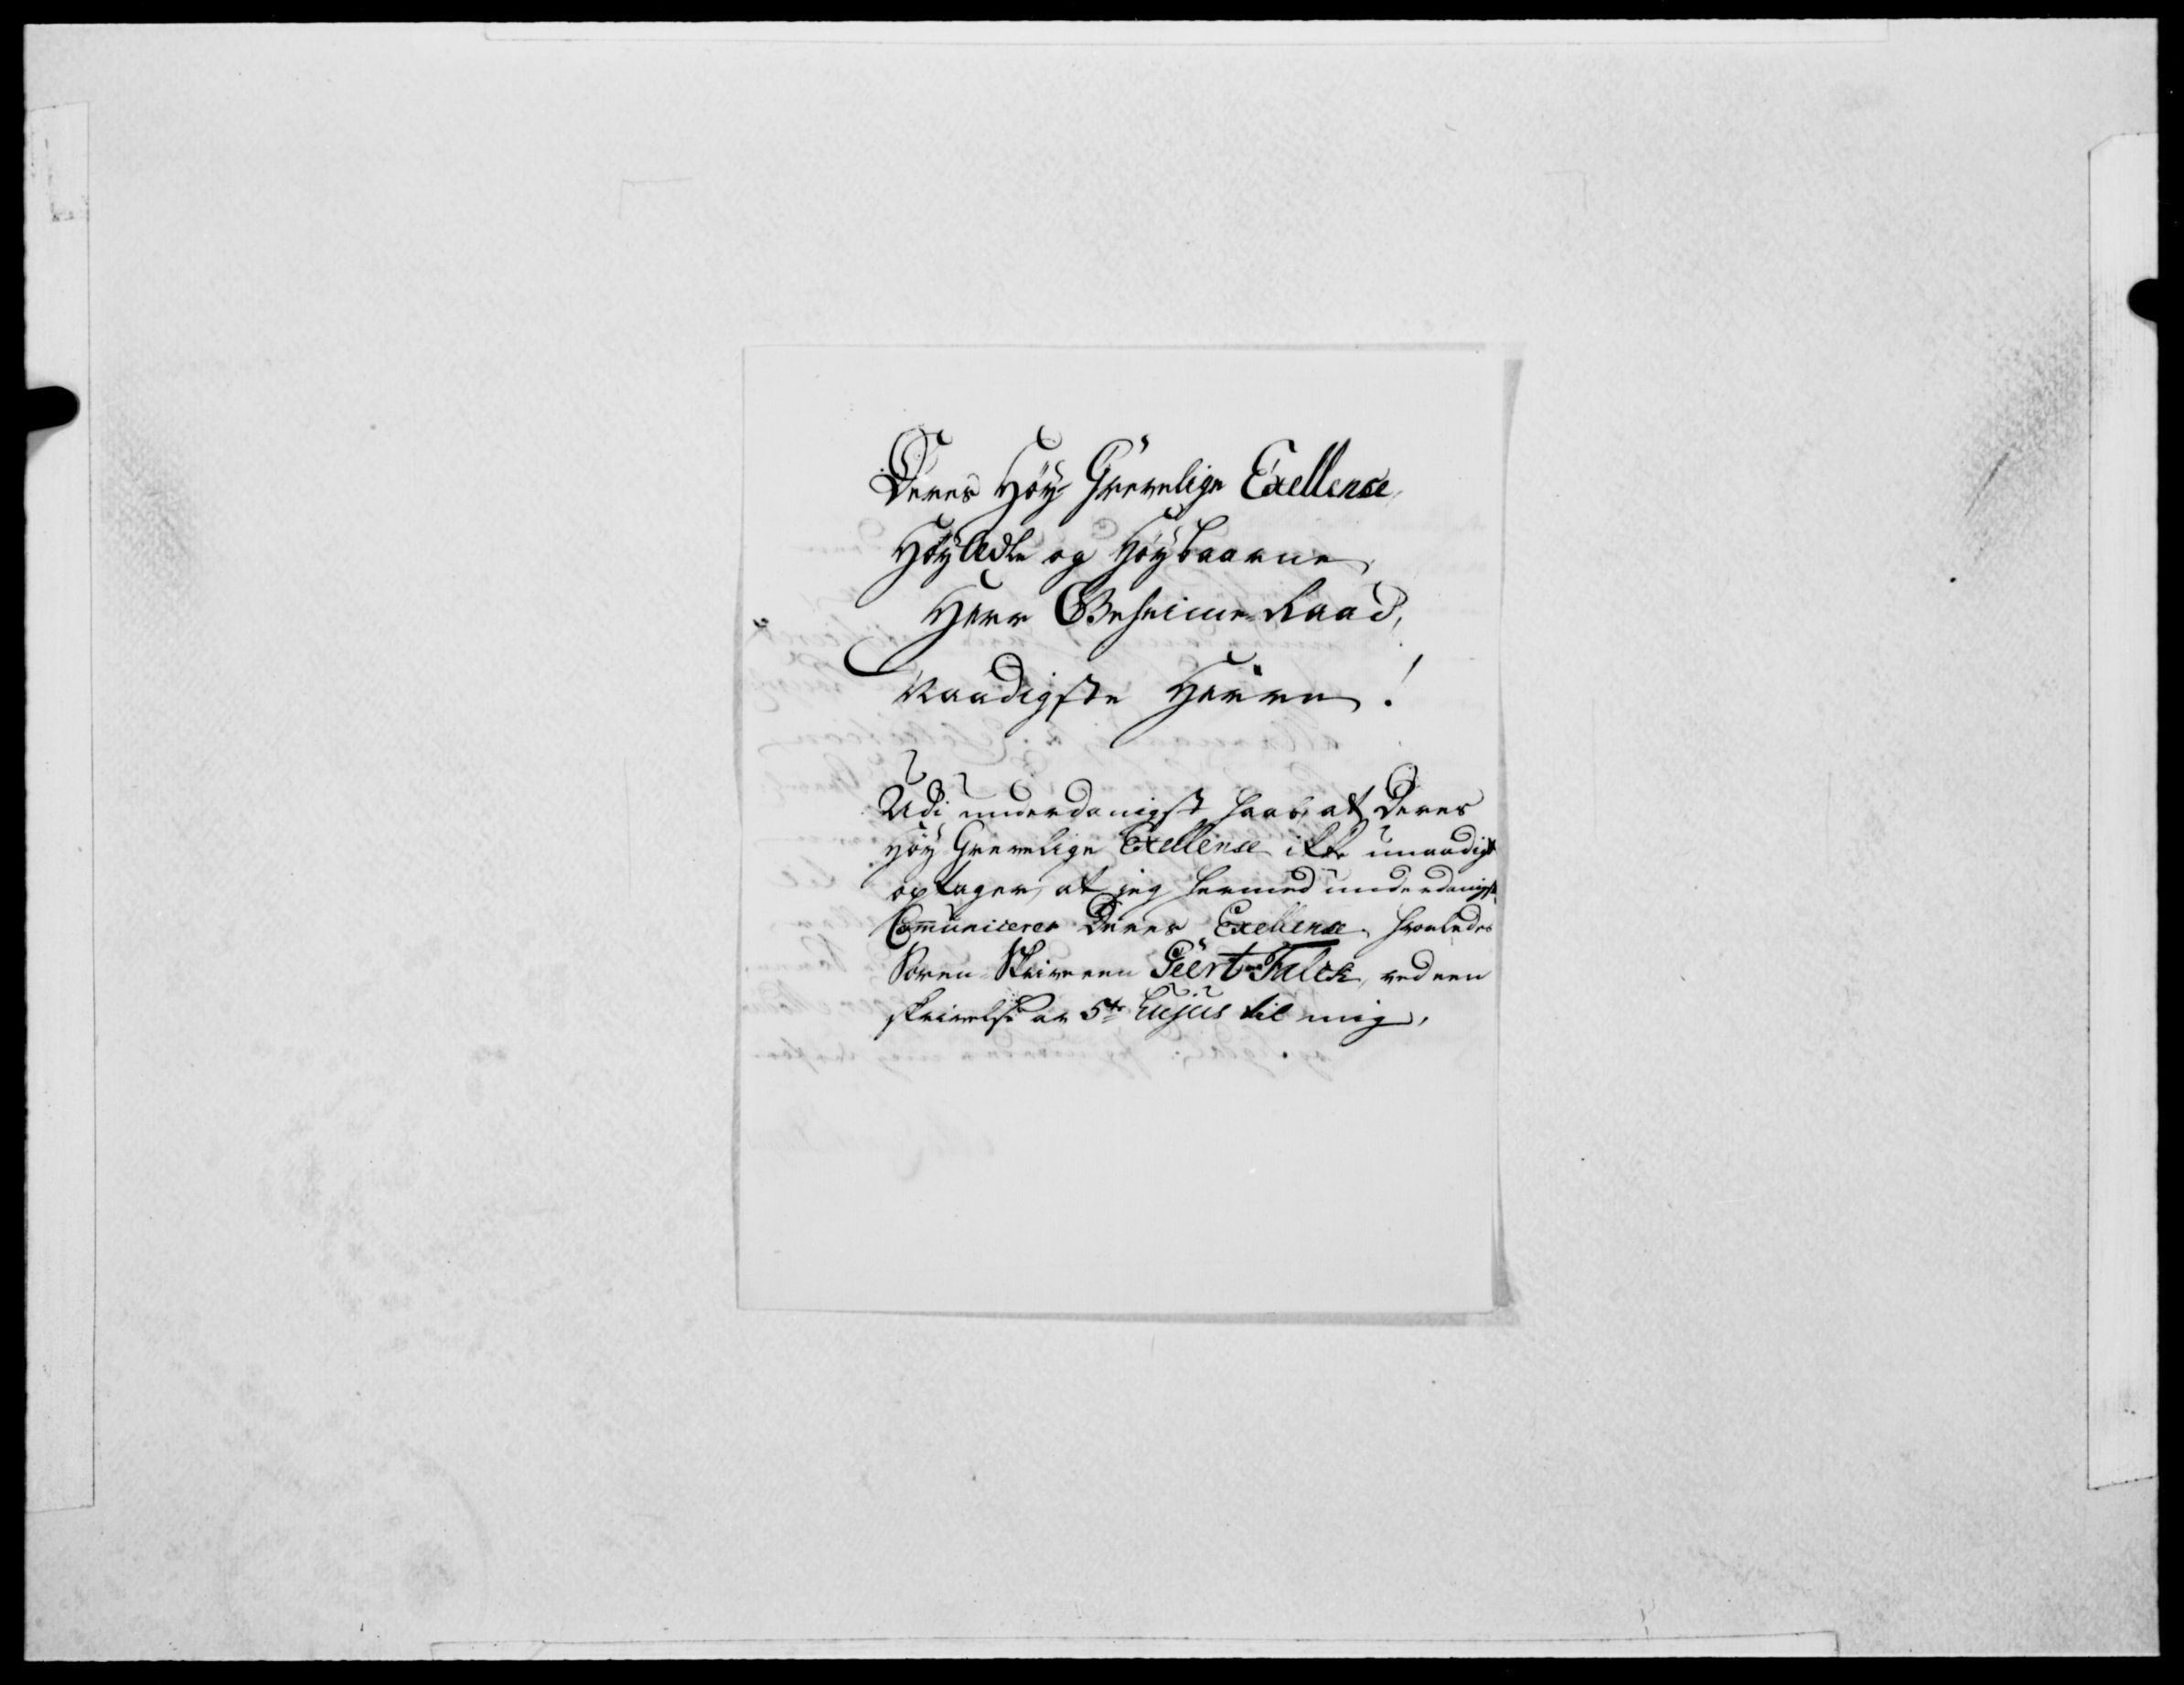 Deres Høÿ Grevelige Exellence,
HøÿÆdle og Høÿbaarne,
Herr Geheime Raad,
Naadigste Herre!
Udi underdanigst haab, at Deres
Høÿ Grevelige Exellence ikke unaadigst
optager, at jeg hermed underdanigst
Communicerer Deres Exellence, hvorledes
Soren-Skriveren Geert Falck, ved een
skrivelse av 5te hujus til mig,